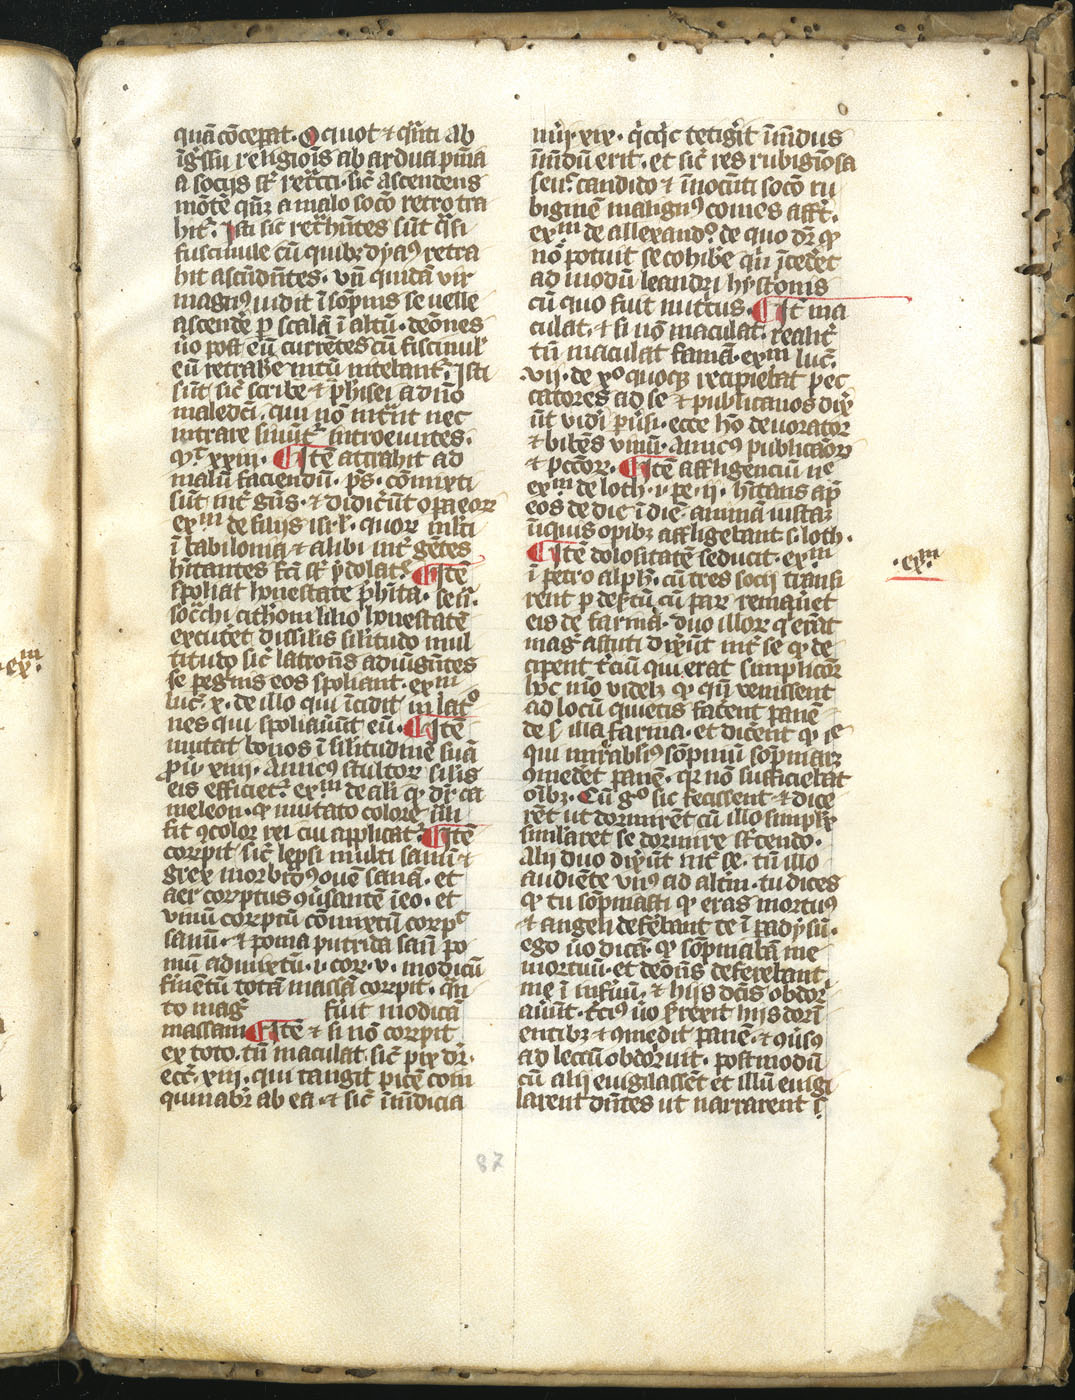 quā cōceperat. O quot ⁊ qͣnti ab
īgr̄ssu religiois̄ ab ardua pnīa
a socijs st̄ retͣcti. sic̄ ascendens
mōtē qn̄ꝫ a malo socō retro tra
hit᷑. Isti sic̄ retͣhn̄tes sūt qͣsi
fuscinule cū quibꝫ dyaꝰ retra
hit ascēdn̄tes. vn̄ quidā vir
magnꝰ uidit ī sōpnis se uelle
ascendē ꝑ scalā ī altū. demōnes
ūo post eū currētes cū fiscinul᷑
eū retrahe nitebant᷑. Isti
sūt sic̄ scribe ⁊ ph̄isei a dn̄o
maledc̄i. qui nō intr̄nt nec
intrare sinūt introeuntes.
mͭ. xxiii. Itē attrahit ad
malū faciendū. ps̄. cōmixti
sūt int̄ gn̄s. ⁊ didicer̄ūt oꝑa eoꝝ
exᵐ de filijs isr̄l. quoꝝ ml̄ti
ī babilonia ⁊ alibi int̄ gētes
hītantes fc̄i st̄ ydolat᷑. Itē
spoliat honestate
excutēt dissilis silitudo mul
titudo sic̄ latrōns adiūgn̄tes
se pegͥnis eos spoliant. exᵐ
luc̄. x. de illo qui īcidit in latͦ
nes qui spoliauūt eū. Itē
mutat bonos ī silitudinē suā
ꝓū. xiiii. Amicꝰ stultoꝝ silis
eis efficiet᷑. exᵐ de ali ꝙ dr̄ ca
meleon. ꝙ mutato colore illi
fit ꝯcolor rei cui applicat᷑. Itē
corꝛpit sic̄ lepͦsi multi sanū ⁊
grex morbidꝰ ouē sanā. et
aer corꝛptus qͥsantē ī eo. et
vinū corꝛptū cōmixtū corꝛpͭ
sanū. ⁊ poma putrida sanū po
mū admixtū. i. cor. v. modicū
fmētū totā massā corꝛpit. qn̄
to mag᷑ fmt modicā
massam Itē ⁊ si nō corꝛpit
ex toto. tn̄ maculat. sic̄ pix dr̄.
ecc̄. xiii. qui tangit picē com
quinabr̄ ab ea. ⁊ sic̄ īmūdicia
nūꝝ xix. qͥcqͥd tetigͥt īmūdus
īmūdū erit. et sic̄ res rubigīosa
seu᷑ candido ⁊ īnocēti socō ru
biginē malignꝰ comes affr̄t.
exᵐ de allexandͦ. de quo dr̄ ꝙ
nō potuit se cohibe qn̄ īcedēt
ad modū leandri hystōnis
cū quo fuit nutritus. Itē ma
culat. ⁊ si nō maculat. realit᷑
tn̄ maculat famā. exᵐ luc̄.
vii. de xͦ quoqꝫ recipiebat pec
catores ad se ⁊ publicanos dix̄
ūt vidi phͣsi. ecce hō deuorator
⁊ bibēs vinū. Amicꝰ publicāoꝝ
⁊ pcc̄oꝝ. Itē affligenciū ue
exᵐ de loth. i. pe. ii. hītans ap̄
eos de die ī diē animā iustaꝫ
īiquis opibꝫ affligebant s. loth.
Itē dolositatē seducit. exᵐ
ī petro alph᷑. cū tres socij transi
rent ꝑ deꝛtū cū parꝫ remaneret
eis de farina. duo illoꝝ qͥ erāt
mag᷑ astuti dixer̄ūt int̄ se ꝙ de
ciperent tc̄iū qui erat simplicior̄
hoc mō videlꝫ ꝙ qn̄ venissent
ad locū quietis facerent panē
de s. illa farina. et dicerent ꝙ ⸗
qui mirablisꝰ sōpniū sōpniarꝫ
ꝯmedēt panē. qꝛ nō sufficiebat
oībꝫ. Cū gͦ sic fecissent ⁊ dice
rēt ut dormirēt cū illo simplex
simlaret se dormire st̄tendo.
alij duo dixer̄ūt int̄ se. tn̄ illo
audiēte vnꝰ ad altm̄. tu dices
ꝙ tu sōpniasti ꝙ eras mortuꝰ
⁊ angeli deferebant te ī ꝑadysū.
ego ūo dicā ꝙ sōpniabā me
mortuū. et demōns deferebant
me ī infnū. ⁊ hijs dc̄is obdor
miuūt. tc̄iꝰ uo srexit hijs dorm̄
entibꝫ ⁊ ꝯmedit panē. ⁊ rūsꝰ
ad lectū obdoꝛuit. postmodū
cū alij euigilassēt et illū euigi
larent dicentes ut narrarent s̄
.exᵐ.
87
.exᵐ.